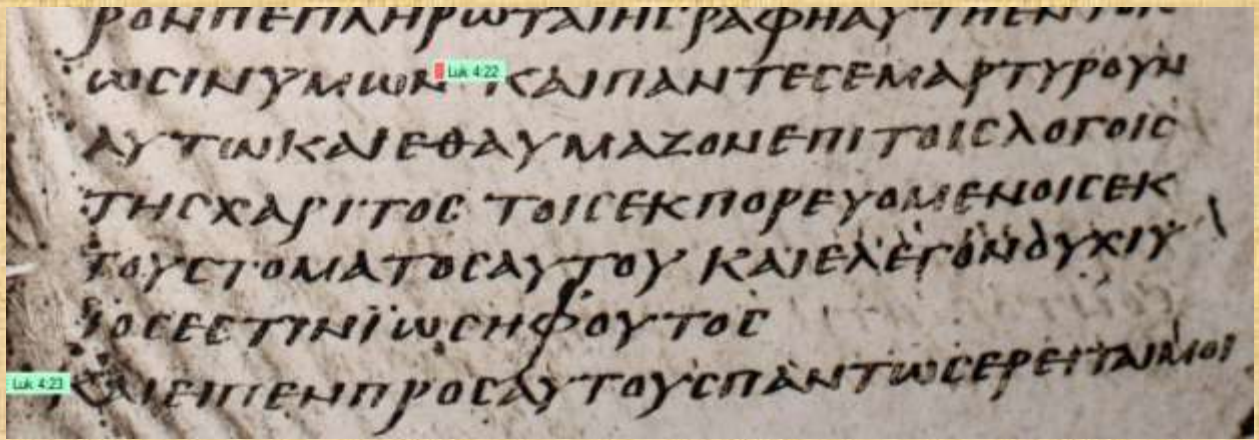 ΡΟΝΠΕΠΛΗΡΩΤΑΙΗΓΡΑΦΗΑΥΤΗΕΝΤΟΙC
ΩCΙΝΥΜΩΝ Luk 4:22 ΚΑΙΠΑΝΤΕCΕΜΑΡΤΥΡΟΥΝ
ΑΥΤΩΚΑΙΕΘΑΥΜΑΖΟΝΕΠΙΤΟΙCΛΟΓΟΙC
ΤΗCΧΑΡΙΤΟC ΤΟΙCΕΚΠΟΡΕΥΟΜΕΝΟΙCΕΚ
ΤΟΥCΤΟΜΑΤΟCΑΥΤΟΥ ΚΑΙΕΛΕΓΟΝΟΥΧΙΥ
ΙΟCΕCΤΙΝΪΩCΗΦΟΥΤΟC
Luk 4:23 ΚΑΙΕΙΠΕΝΠΡΟCΑΥΤΟΥCΠΑΝΤΩCΕΡΕΙΤΑΙΜΟΙ